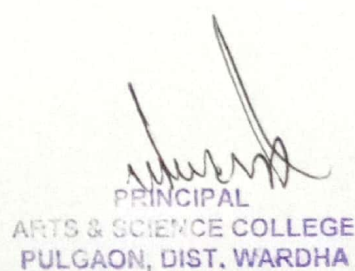 PRINCIPAL
ARTS & SCIENCE COLLEGE
PULGAON, DIST. WARDHA